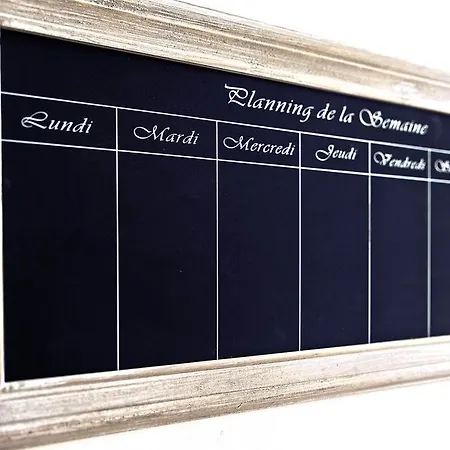 Planning de la Semaine
Lundi Mardi Mercredi Jeudi Vendredi